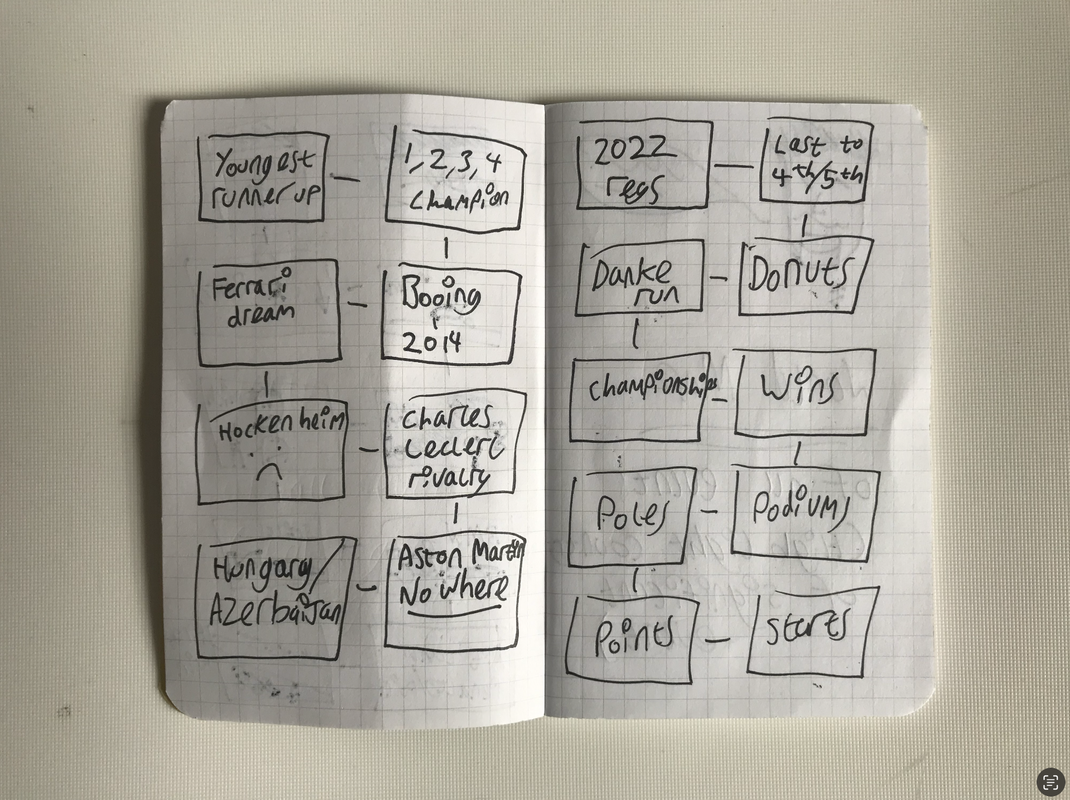 Youngest
runner up
1, 2, 3, 4
Champion
Ferrari
dream
Booing
2014
Hockenheim
Charles
Leclerc
rivalry
Hungary/
Azerbaijan
Aston Martin
No where
2022
regs
Last to
4th/5th
Danke
run
Donuts
Championships
Wins
Poles
Podiums
Points
Starts